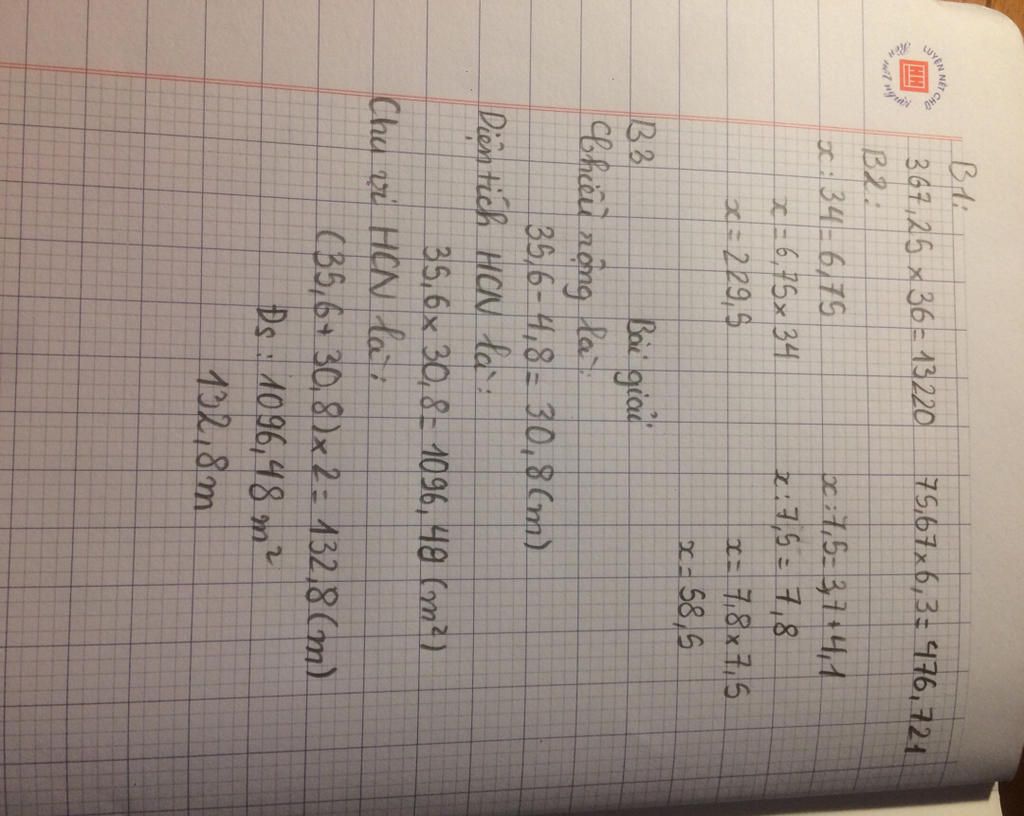 LUYỆN NÉT CHỮ
Rèn nết người
B1:
367,25 × 36 = 13220 75,67 × 6,3 = 476,721
B2:
x : 34 = 6,75 x : 7,5 = 3,7 + 4,1
x = 6,75 × 34 x : 7,5 = 7,8
x = 229,5 x = 7,8 × 7,5
x = 58,5
B3 Bài giải
Chiều rộng là:
35,6 - 4,8 = 30,8 (m)
Diện tích HCN là:
35,6 × 30,8 = 1096,48 (m²)
Chu vi HCN là:
(35,6 + 30,8) × 2 = 132,8 (m)
Đs : 1096,48 m²
132,8 m